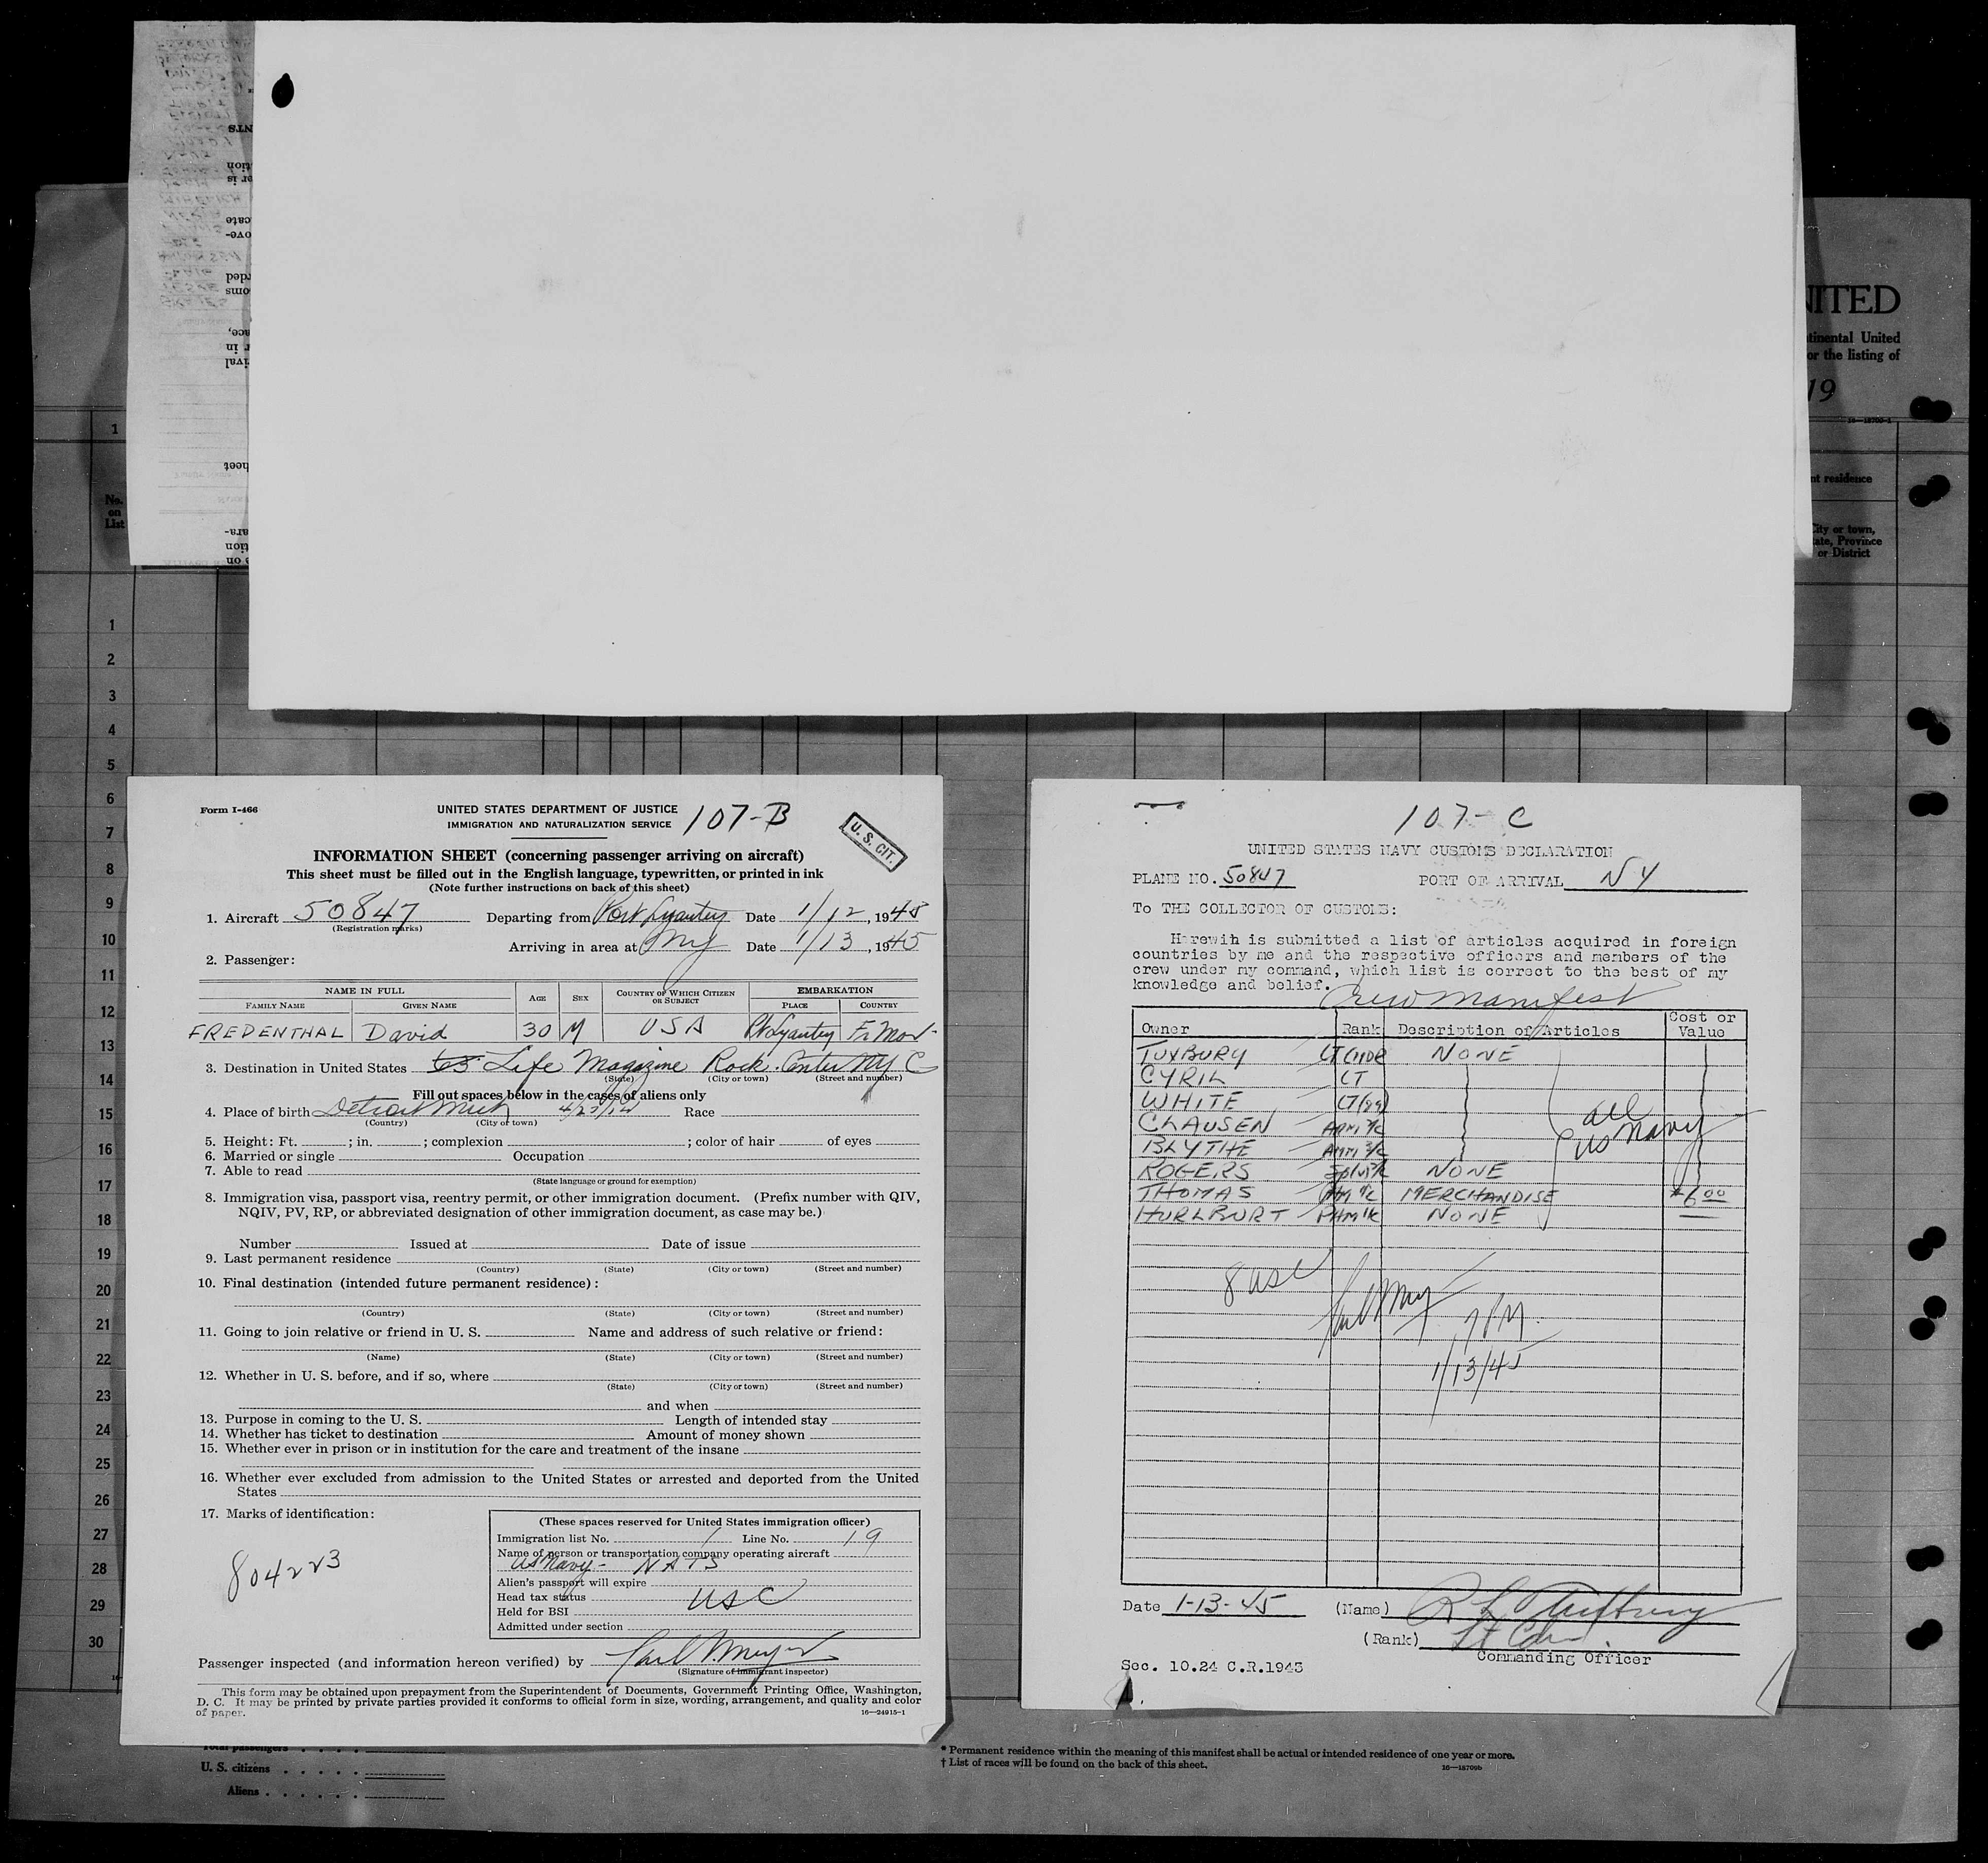 NITED
tinental United
or the listing of
19
16—18709-1
nt residence
City or town,
ate, Province
or District
No.
on
List
1
1
2
3
4
5
6
7
8
9
10
11
12
13
14
15
16
17
18
19
20
21
22
23
24
25
26
27
28
29
30
Form I-466
UNITED STATES DEPARTMENT OF JUSTICE
IMMIGRATION AND NATURALIZATION SERVICE
107-B
U. S. CIT.
INFORMATION SHEET (concerning passenger arriving on aircraft)
This sheet must be filled out in the English language, typewritten, or printed in ink
(Note further instructions on back of this sheet)
1. Aircraft 50847 Departing from Port Lyautey Date 1/12, 1945
(Registration marks)
Arriving in area at NY Date 1/13, 1945
2. Passenger:
NAME IN FULL AGE SEX COUNTRY OF WHICH CITIZEN OR SUBJECT EMBARKATION
FAMILY NAME GIVEN NAME PLACE COUNTRY
FREDENTHAL David 30 M USA Pt Lyautey Fr Mor-
3. Destination in United States Life Magazine Rock. Center NY C
(State) (City or town) (Street and number)
Fill out spaces below in the cases of aliens only
4. Place of birth Detroit Mich 4/28/14 Race
(Country) (City or town)
5. Height: Ft. ; in. ; complexion ; color of hair of eyes
6. Married or single Occupation
7. Able to read
(State language or ground for exemption)
8. Immigration visa, passport visa, reentry permit, or other immigration document. (Prefix number with QIV,
NQIV, PV, RP, or abbreviated designation of other immigration document, as case may be.)
Number Issued at Date of issue
9. Last permanent residence
(Country) (State) (City or town) (Street and number)
10. Final destination (intended future permanent residence):
(Country) (State) (City or town) (Street and number)
11. Going to join relative or friend in U. S. Name and address of such relative or friend:
(Name) (State) (City or town) (Street and number)
12. Whether in U. S. before, and if so, where
(State) (City or town) (Street and number)
and when
13. Purpose in coming to the U. S. Length of intended stay
14. Whether has ticket to destination Amount of money shown
15. Whether ever in prison or in institution for the care and treatment of the insane
16. Whether ever excluded from admission to the United States or arrested and deported from the United
States
17. Marks of identification:
804223
(These spaces reserved for United States immigration officer)
Immigration list No. 1 Line No. 19
Name of person or transportation company operating aircraft
US Navy - NATS
Alien's passport will expire
Head tax status USC
Held for BSI
Admitted under section
Passenger inspected (and information hereon verified) by
(Signature of immigrant inspector)
This form may be obtained upon prepayment from the Superintendent of Documents, Government Printing Office, Washington,
D. C. It may be printed by private parties provided it conforms to official form in size, wording, arrangement, and quality and color
of paper.
16—24915-1
107-C
UNITED STATES NAVY CUSTOMS DECLARATION
PLANE NO. 50847 PORT OF ARRIVAL NY
To THE COLLECTOR OF CUSTOMS:
Herewih is submitted a list of articles acquired in foreign
countries by me and the respective officers and members of the
crew under my command, which list is correct to the best of my
knowledge and belief.
Crew Manifest
Owner Rank Description of Articles Cost or Value
TUXBURY LT CMDR NONE
CYRIL LT
WHITE LT(jg)
CLAUSEN AMM 3/c
BLYTHE AMM 3/c
ROGERS NONE
THOMAS MERCHANDISE $6.00
HURLBURT PHM 1/c NONE
all
US Navy
8 USC
7 PM.
1/13/45
Date 1-13-45 (Name)
(Rank) Lt Cdr.
Commanding Officer
Sec. 10.24 C.R.1943
Total passengers
U. S. citizens
Aliens
* Permanent residence within the meaning of this manifest shall be actual or intended residence of one year or more.
† List of races will be found on the back of this sheet.
16—18709b